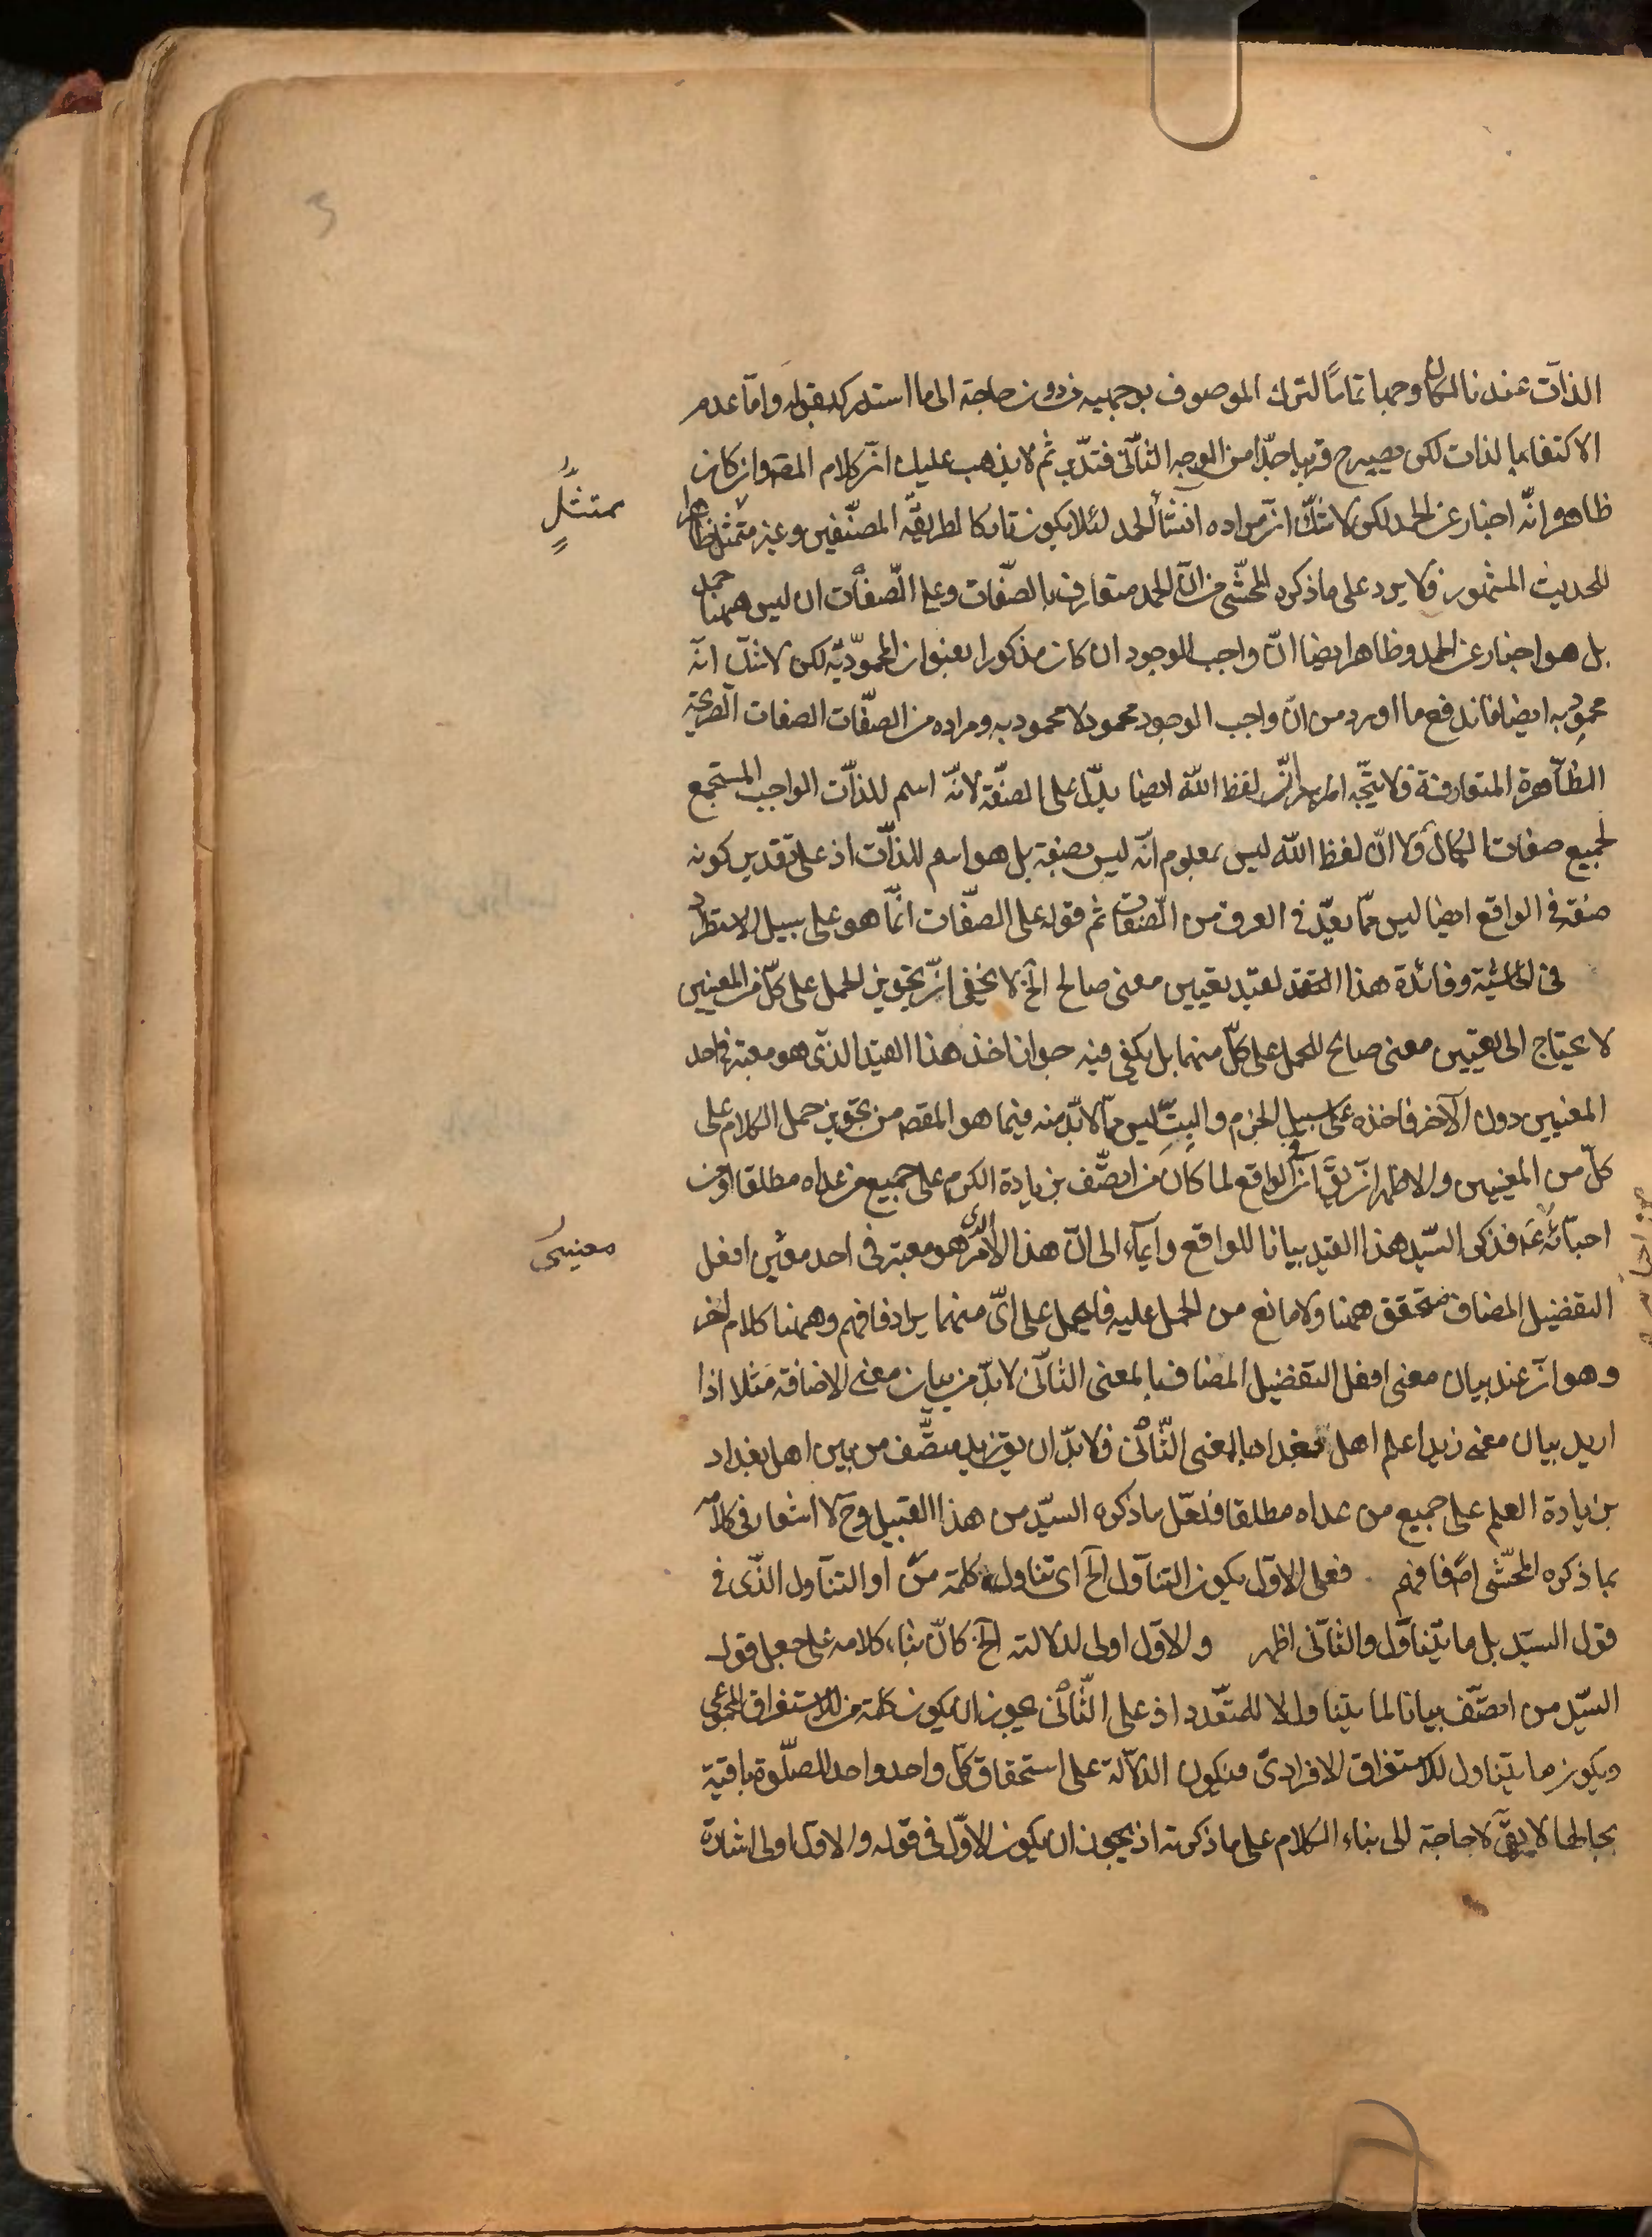 الذات عندنا لكان وجها تاما لترك الموصوف بوجهيه من دون حاجة الى ما استدركه بقوله واما عدم
الاكتفاء بالذات لكن يصير ح قريبا جدا من الوجه الثانى فتدبر ثم لا يذهب عليك ان كلام المص وان كان
ظاهرا انه اخبار عن الحمد لكن لا شك ان مراده انشاء الحمد لئلا يكون تاركا لطريقة المصنفين وغير متمثل ظاهرا
للحديث المشهور فلا يرد على ما ذكره المحشى من ان الحمد متعارف بالصفات وعلى الصفات ان ليس ههنا حمد
بل هو اخبار عن الحمد وظاهر ايضا ان واجب الوجود ان كان مذكورا بعنوان المحمودية لكن لا شك انه
محمود به ايضا فاندفع ما اورد من ان واجب الوجود محمود لا محمود به ومراده من الصفات الصفات الصريحة
الظاهرة المتعارفة فلا يتجه ان لفظ الله ايضا يدل على الصفة لانه اسم للذات الواجب المستجمع
لجميع صفات الكمال ولا ان لفظ الله ليس بمعلوم انه ليس بصفة بل هو اسم للذات اذ على تقدير كونه
صفة فى الواقع ايضا ليس مما يعد فى العرف من الصفات ثم قوله على الصفات انما هو على سبيل الاستطراد
فى الحاشية وفائدة هذا القيد تعيين معنى صالح الخ لا يخفى ان تجويز الحمل على كل من المعنيين
لا يحتاج الى تعيين معنى صالح للحمل على كل منهما بل يكفى فيه جواز اخذ هذا القيد الذى هو معتبر فى احد
المعنيين دون الآخر فاخذه على سبيل الجزم والبت ليس مما لابد منه فيما هو المقصد من تجويز حمل الكلام على
كل من المعنيين والاظهر ان يق ان فى الواقع لما كان من اتصف بزيادة الكرم على جميع من عداه مطلقا او من
احبائه عه فذكر السيد هذا القيد بيانا للواقع وايماء الى ان هذا الامر الذى هو معتبر فى احد معنيى افعل
التفضيل المضاف متحقق ههنا ولا مانع من الحمل عليه فليحمل على اى منهما يراد فافهم وههنا كلام آخر
وهو ان عند بيان معنى افعل التفضيل المضاف بالمعنى الثانى لابد من بيان معنى الاضافة مثلا اذا
اريد بيان معنى زيد اعلم اهل بغداد بالمعنى الثانى فلا بد ان يق زيد متصف من بين اهل بغداد
بزيادة العلم على جميع من عداه مطلقا فلعل ما ذكره السيد من هذا القبيل وح لا اشعار فى كلامه
بما ذكره المحشى اصلا فافهم فعلى الاول يكون التناول الخ اى تناول كلمة من او التناول الذى فى
قول السيد بل ما يتناول والثانى اظهر والاول اولى لدلالته الخ كان بناء كلامه على جعل قول
السيد من اتصف بيانا لما يتناول لا للمتعدد اذ على الثانى يجوز ان يكون كلمة من للاستغراق المجموعى
ويكون ما يتناول للاستغراق الافرادى فيكون الدلالة على استحقاق كل واحد واحد للصلوة باقية
بحالها لا يق لا حاجة الى بناء الكلام على ما ذكرته اذ يجوز ان يكون الاول فى قوله والاول اولى اشارة
ممتثل
معنيى